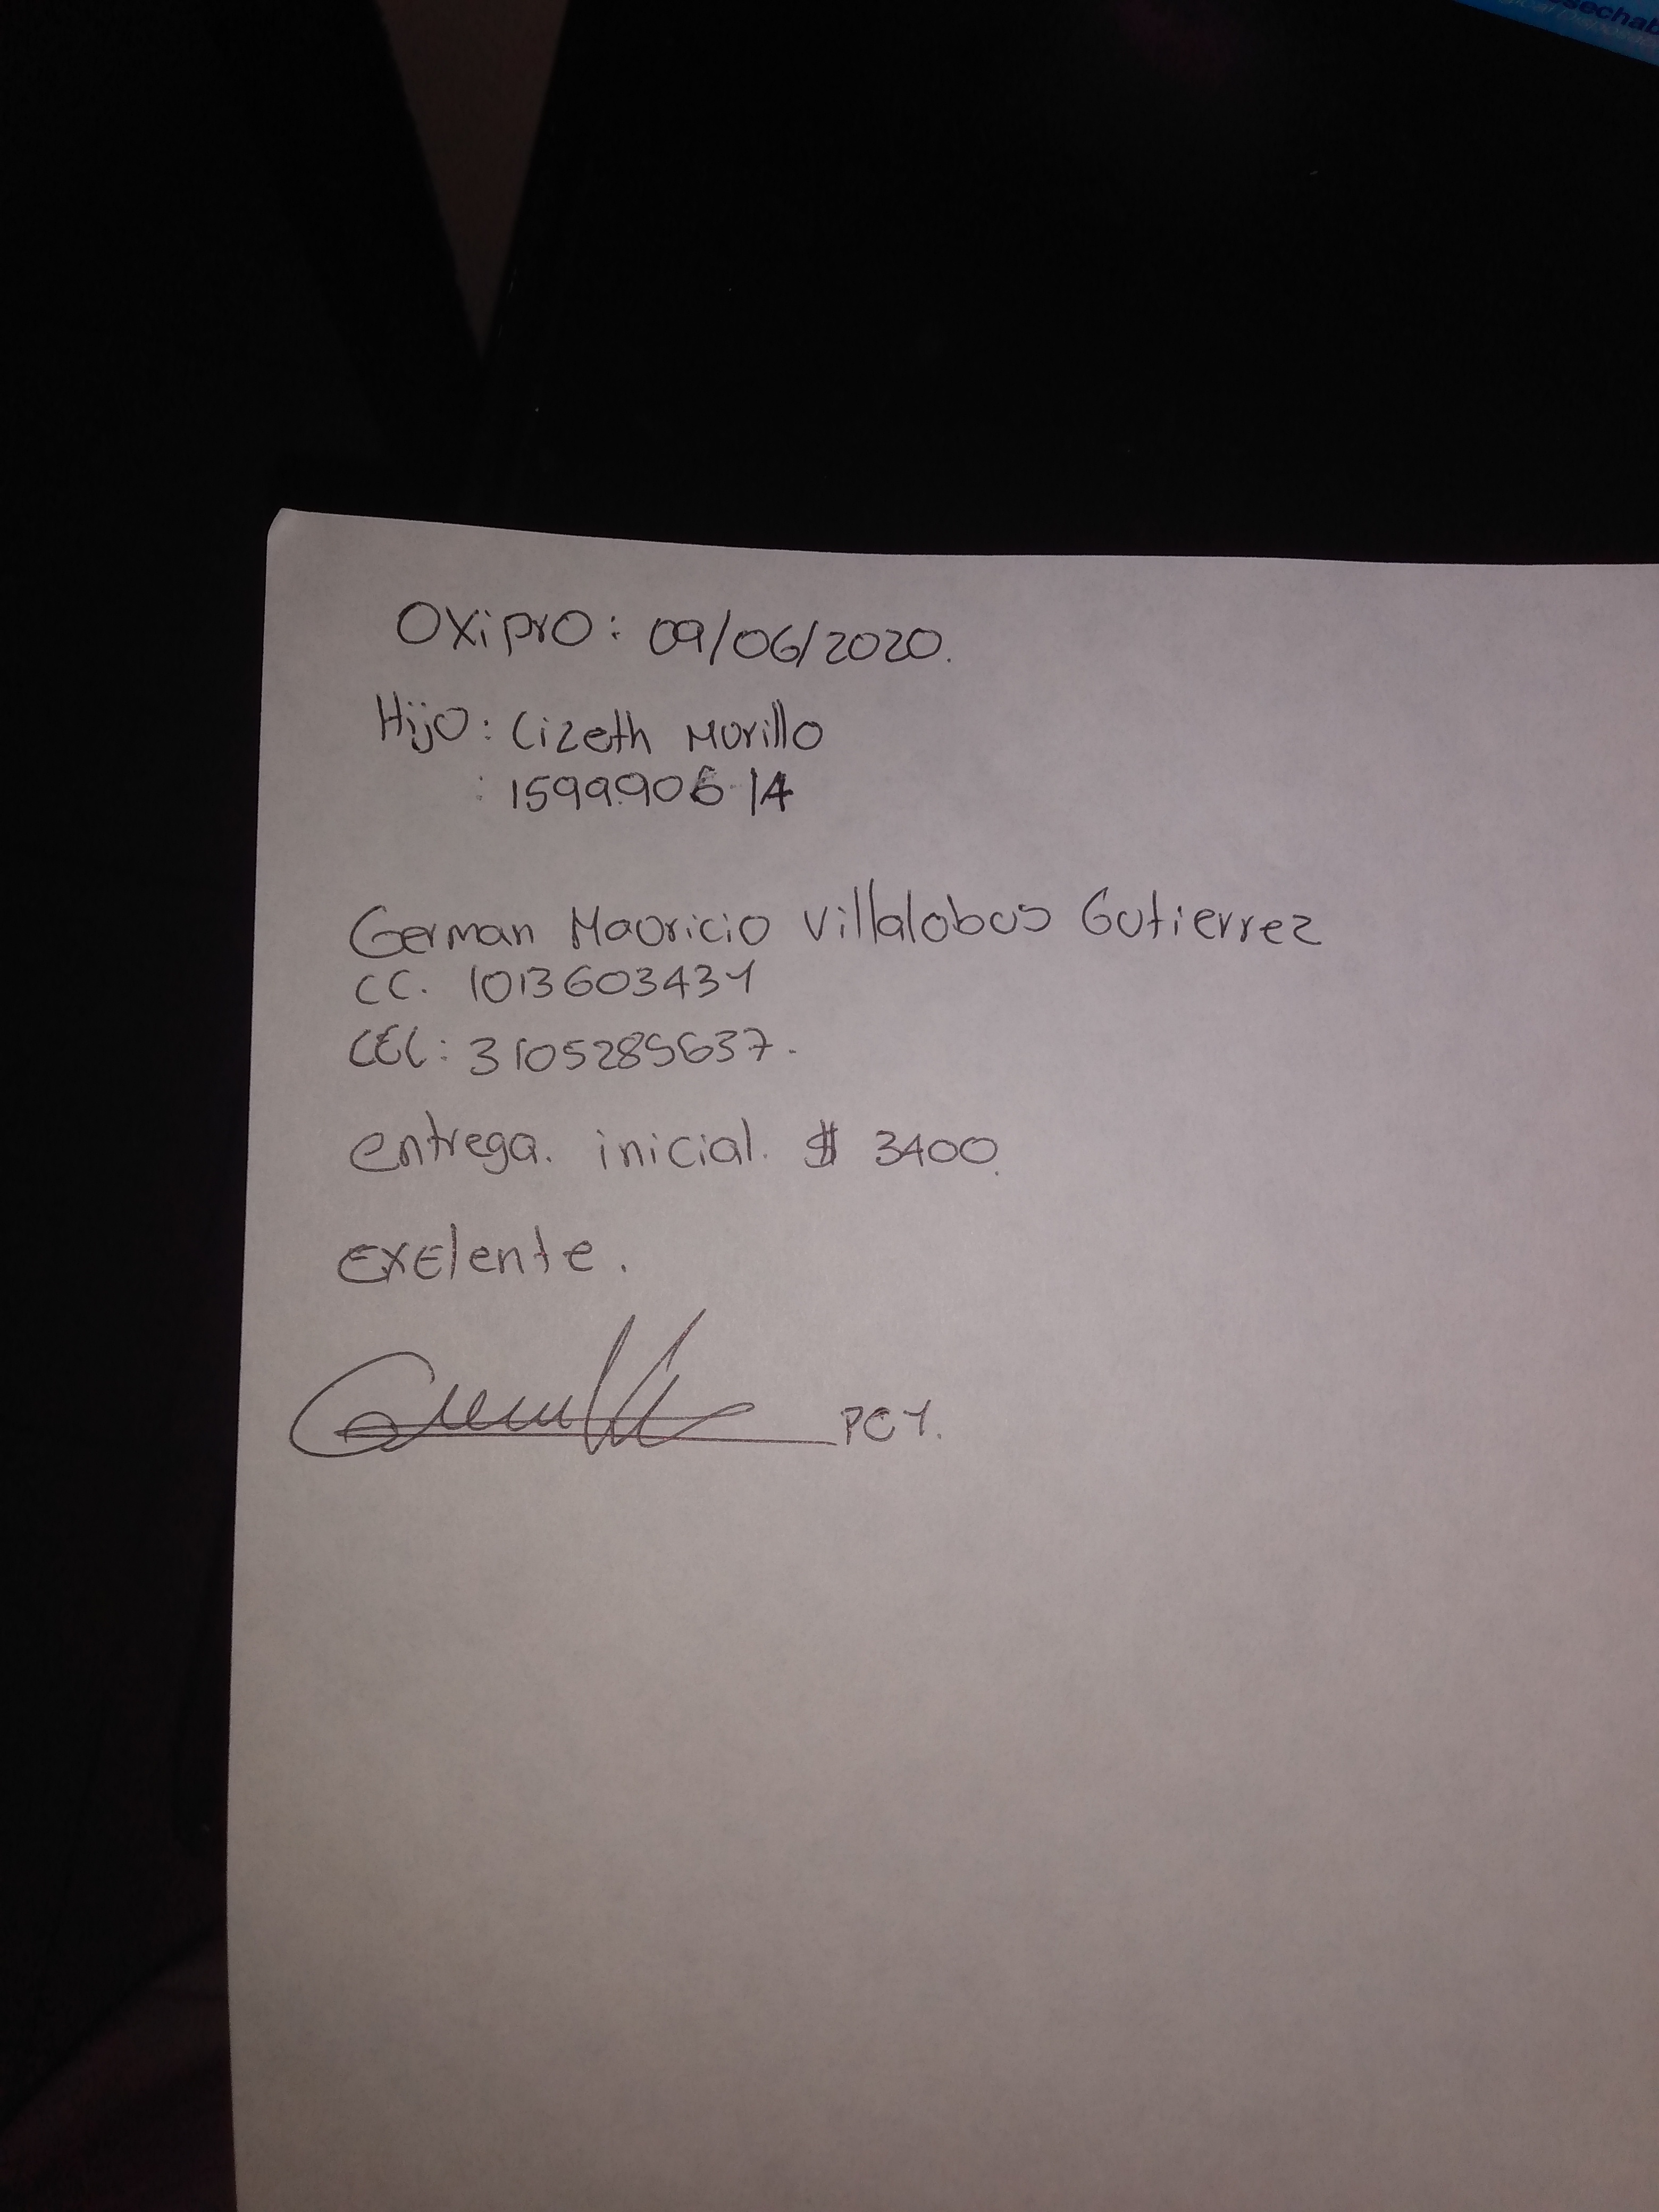 sechab
Oxipro: 09/06/2020.
Hijo: Lizeth Morillo
: 1599906 14
German Mauricio Villalobos Gutierrez
CC. 1013603431
CEL: 3105285637.
entrega. inicial. $ 3400.
Exelente.
PCY.